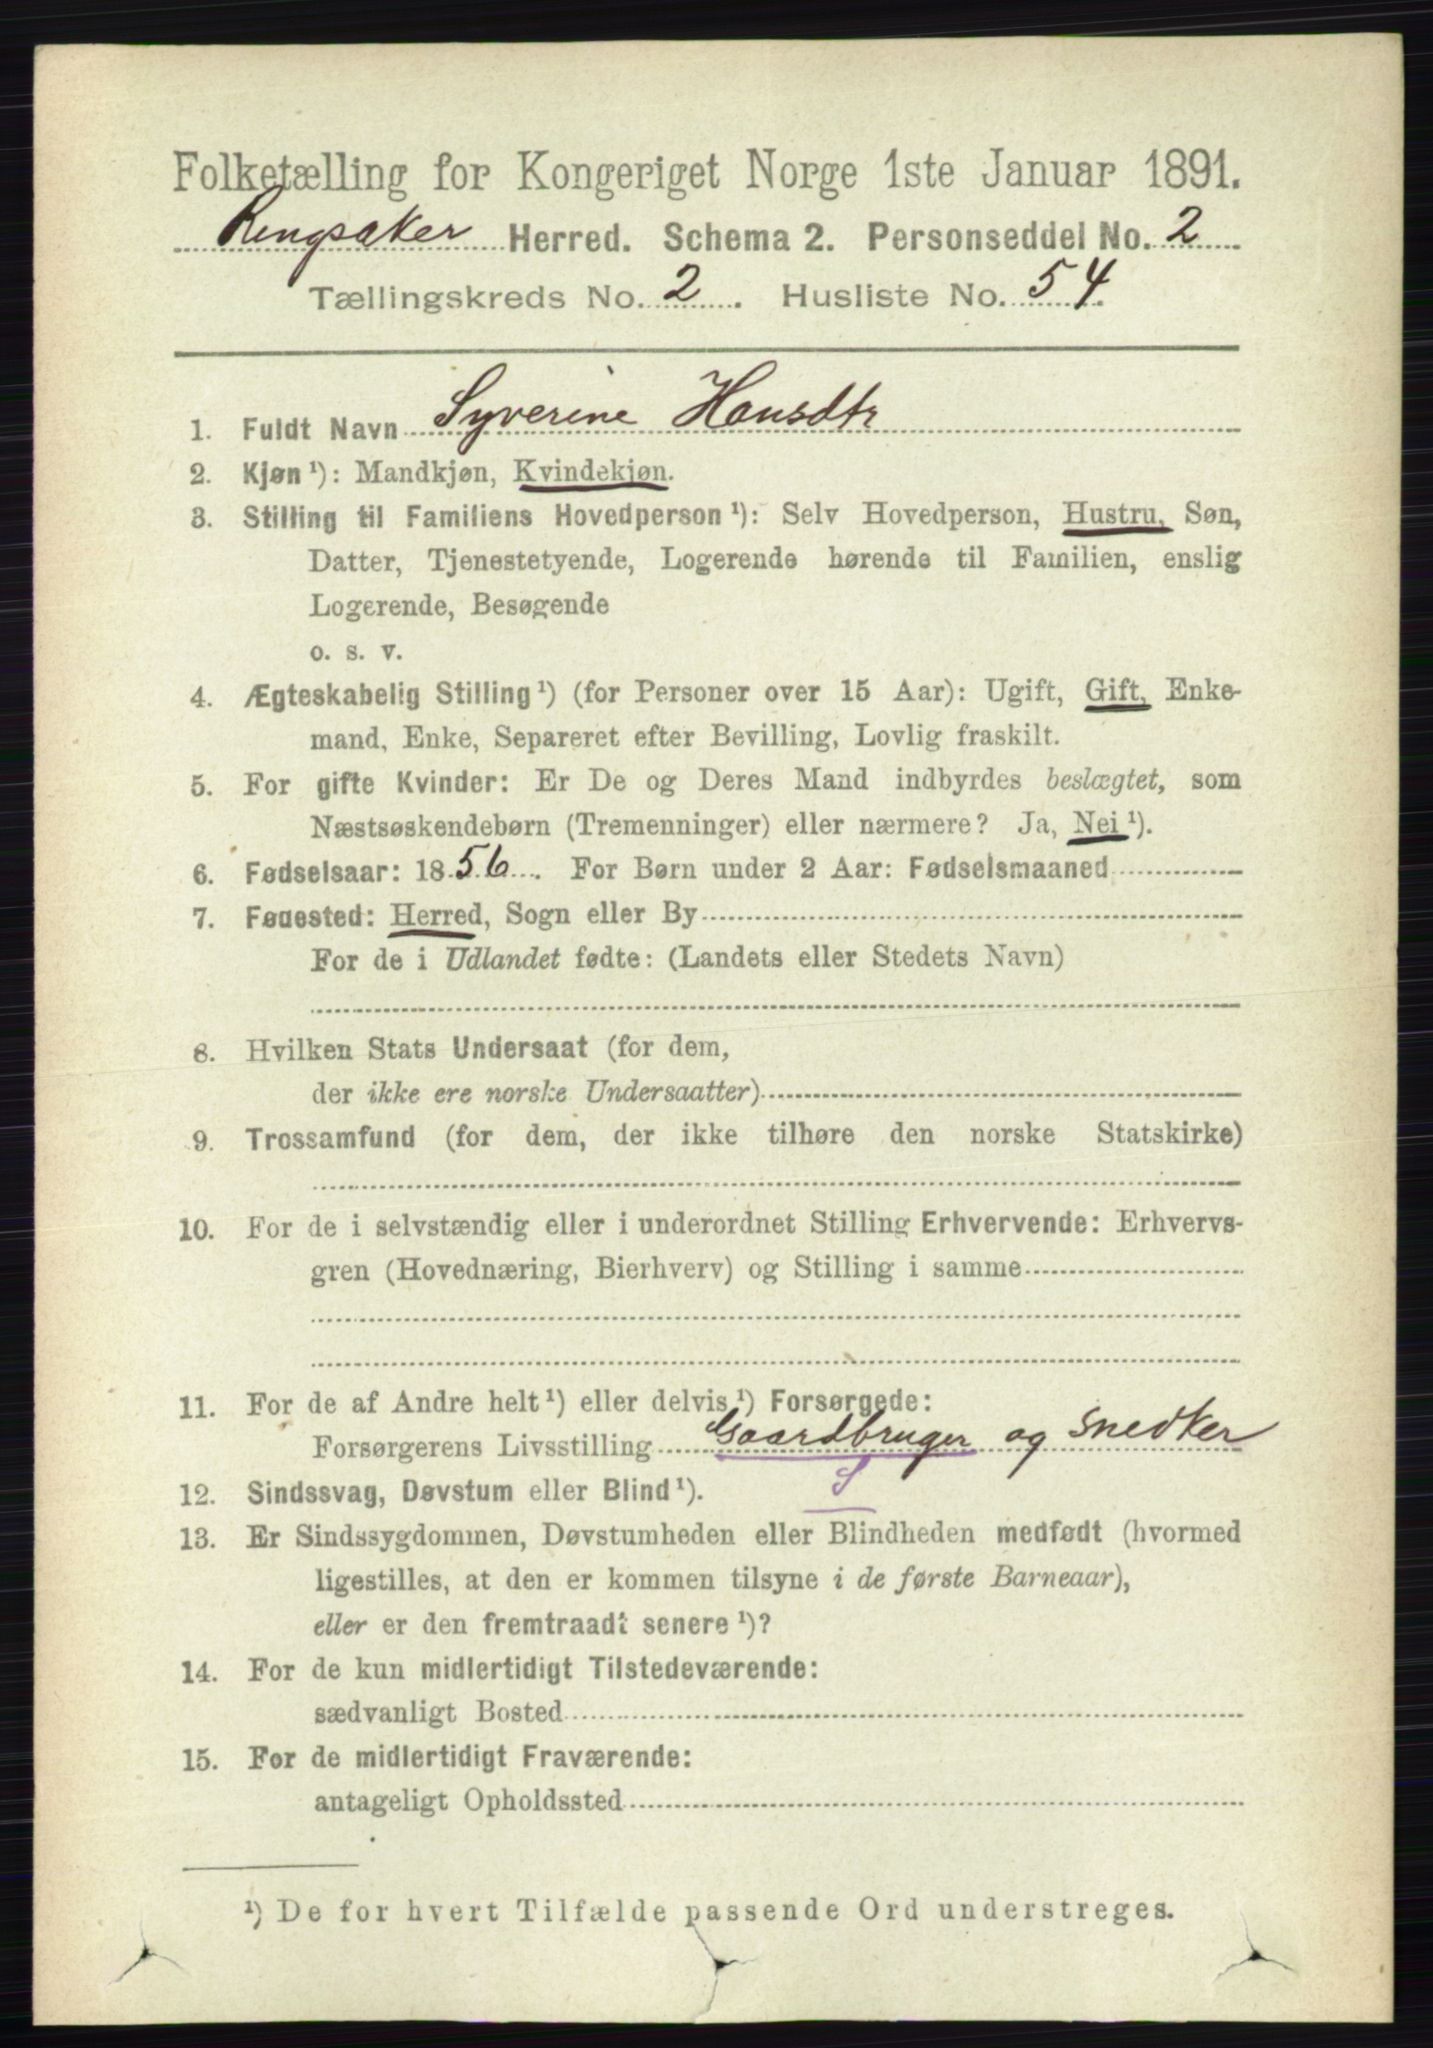 Folketælling for Kongeriget Norge 1ste Januar 1891.
Ringsaker Herred. Schema 2. Personseddel No. 2
Tællingskreds No. 2. Husliste No. 54.
1. Fuldt Navn Syverine Hansdtr
2. Kjøn ¹): Mandkjøn, Kvindekjøn.
3. Stilling til Familiens Hovedperson ¹): Selv Hovedperson, Hustru, Søn,
Datter, Tjenestetyende, Logerende hørende til Familien, enslig
Logerende, Besøgende
o. s. v.
4. Ægteskabelig Stilling ¹) (for Personer over 15 Aar): Ugift, Gift, Enke-
mand, Enke, Separeret efter Bevilling, Lovlig fraskilt.
5. For gifte Kvinder: Er De og Deres Mand indbyrdes beslægtet, som
Næstsøskendebørn (Tremenninger) eller nærmere? Ja, Nei ¹).
6. Fødselsaar: 1856. For Børn under 2 Aar: Fødselsmaaned
7. Fødested: Herred, Sogn eller By
For de i Udlandet fødte: (Landets eller Stedets Navn)
8. Hvilken Stats Undersaat (for dem,
der ikke ere norske Undersaatter)
9. Trossamfund (for dem, der ikke tilhøre den norske Statskirke)
10. For de i selvstændig eller i underordnet Stilling Erhvervende: Erhvervs-
gren (Hovednæring, Bierhverv) og Stilling i samme
11. For de af Andre helt ¹) eller delvis ¹) Forsørgede:
Forsørgerens Livsstilling Gaardbruger og Snedker
S
12. Sindssvag, Døvstum eller Blind ¹).
13. Er Sindssygdommen, Døvstumheden eller Blindheden medfødt (hvormed
ligestilles, at den er kommen tilsyne i de første Barneaar),
eller er den fremtraadt senere ¹)?
14. For de kun midlertidigt Tilstedeværende:
sædvanligt Bosted
15. For de midlertidigt Fraværende:
antageligt Opholdssted
¹) De for hvert Tilfælde passende Ord understreges.